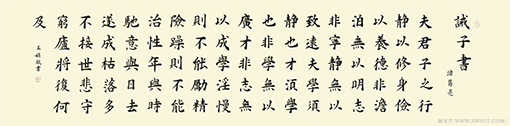 誡子書
諸葛亮
夫君子之行
靜以修身儉
以養德非澹
泊無以明志
非寧靜無以
致遠夫學湏
靜也才湏學
也非學無以
廣才非志無
以成學淫慢
則不能勵精
險躁則不能
治性年與時
馳意與日去
遂成枯落多
不接世悲守
窮廬將復何
及